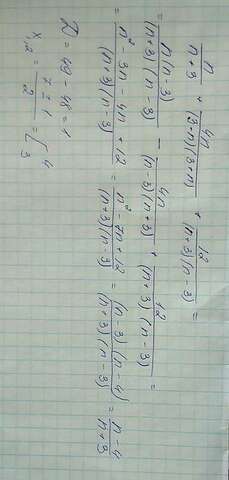 n/(n+3) + 4n/((3-n)(3+n)) + 12/((n+3)(n-3)) =
= n(n-3)/((n+3)(n-3)) - 4n/((n-3)(n+3)) + 12/((n+3)(n-3)) =
= (n² - 3n - 4n + 12)/((n+3)(n-3)) = (n² - 7n + 12)/((n+3)(n-3)) = ((n-3)(n-4))/((n+3)(n-3)) = (n-4)/(n+3)
D = 49 - 48 = 1
x₁,₂ = (7 ± 1)/2 = [4 3